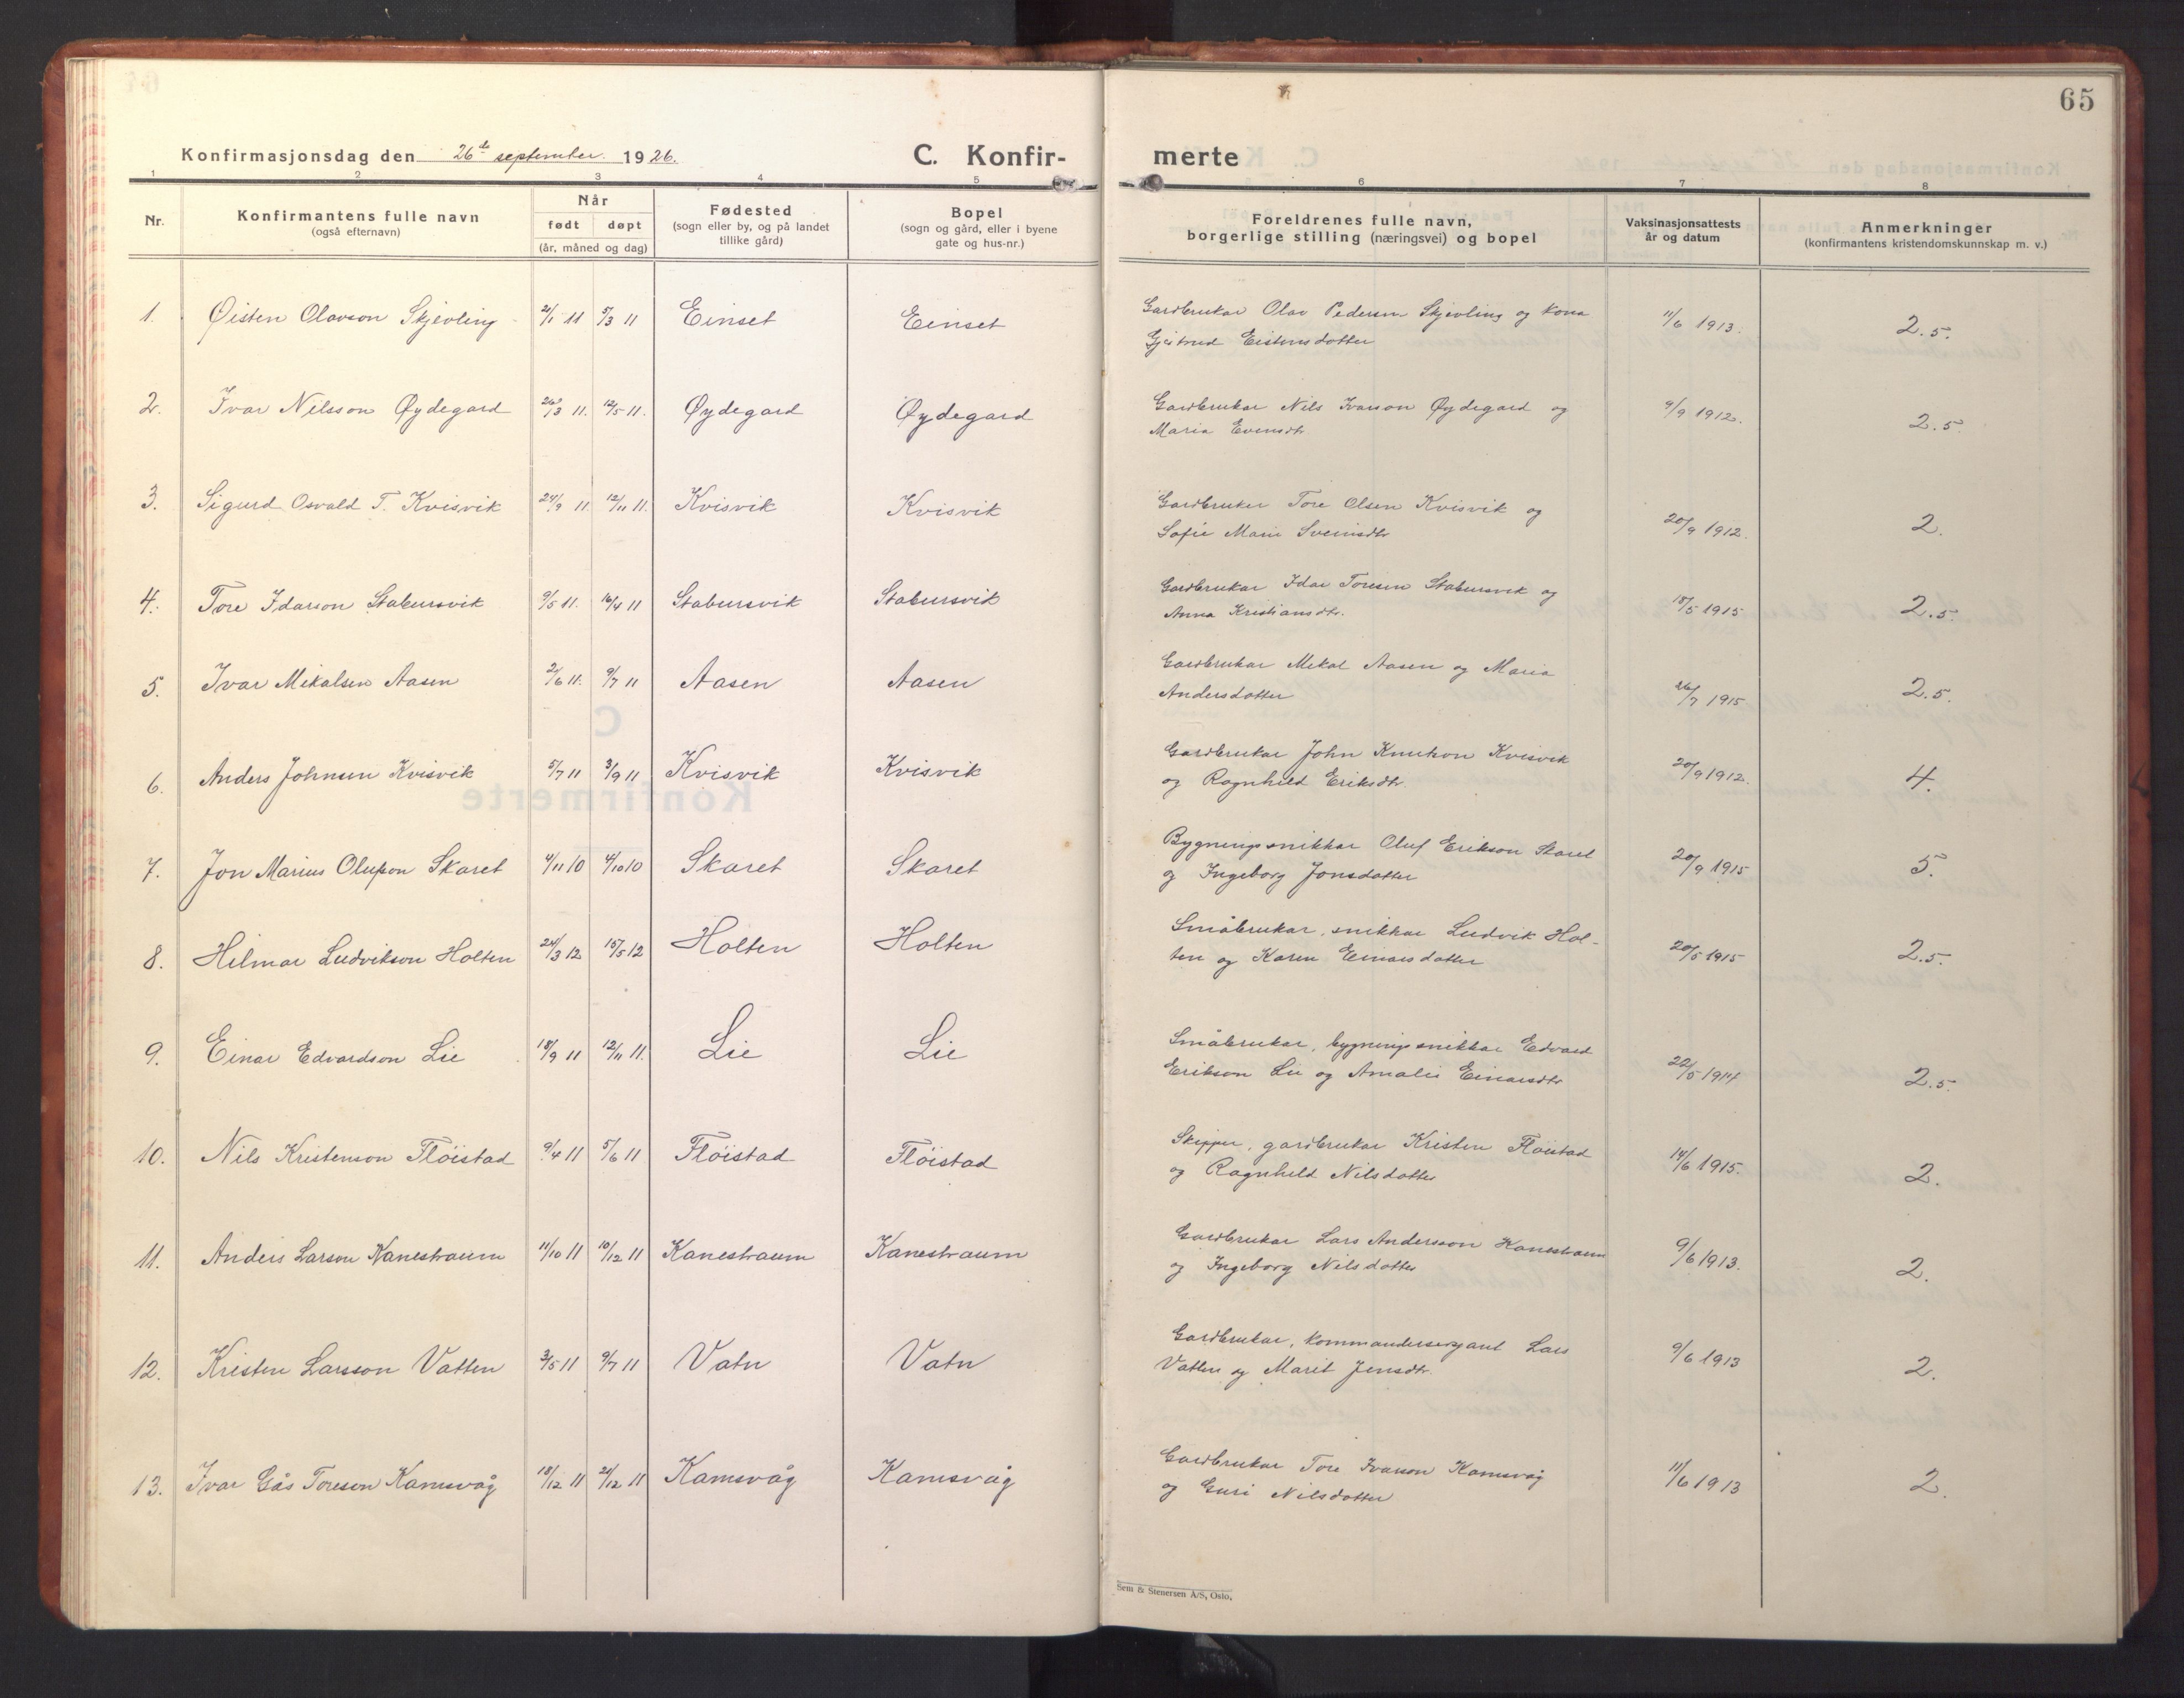 65
Konfirmasjonsdag den 26de september 1926.
C. Konfir-
merte
1 2 3 4 5 6 7 8
Nr.
Konfirmantens fulle navn
(også efternavn)
Når
født døpt
(år, måned og dag)
Fødested
(sogn eller by, og på landet
tillike gård)
Bopel
(sogn og gård, eller i byene
gate og hus-nr.)
Foreldrenes fulle navn,
borgerlige stilling (næringsvei) og bopel
Vaksinasjonsattests
år og datum
Anmerkninger
(konfirmantens kristendomskunnskap m. v.)
1. Øisten Olavson Skjevling 2/1 11 5/3 11 Einset Einset Gardbrukar Olav Pedersen Skjevling og kona 11/6 1913. 2.5.
Gjertrud Eistensdotter
2. Ivar Nilsson Øydegard 26/3 11. 12/5 11. Øydegard Øydegard Gardbrukar Nils Ivarson Øydegard og 9/9 1912. 2.5.
Maria Evensdtr
3. Sigurd Osvald T. Kvisvik 24/9 11. 12/11 11. Kvisvik Kvisvik Gardbruker Tore Olsen Kvisvik og 20/9 1912. 2.
Sofie Marie Sveinsdtr
4. Tore Idarson Stabursvik 9/5 11. 16/4 11 Stabursvik Stabursvik Gardbrukar Idar Toresen Stabursvik og 18/5 1915 2.5.
Anna Kristiansdtr.
5. Ivar Mikalsen Aasen 2/6 11. 9/7 11 Aasen Aasen Gardbrukar Mikal Aasen og Maria 26/7 1915 2.5.
Andersdotter
6. Anders Johnsen Kvisvik 5/7 11 3/9 11 Kvisvik Kvisvik Gardbrukar John Knutson Kvisvik 20/9 1912. 4.
og Ragnhild Eriksdtr.
7. Jon Marius Olufson Skaret 4/11 10 4/10 10 Skaret Skaret Bygningssnikkar Oluf Erikson Skaret 20/9 1915 5.
og Ingeborg Jonsdotter
8. Hilmar Ludvikson Holten 24/3 12 15/5 12 Holten Holten Småbrukar, snikkar Ludvik Hol- 20/5 1915 2.5.
ten og Karen Einarsdotter
9. Einar Edvardson Lie 18/9 11 12/11 11. Lie Lie Småbrukar, bygningssnikkar Edvard 22/5 1914 2.5.
Erikson Lie og Amalie Einarsdtr
10. Nils Kristenson Flöistad 9/4 11 5/6 11 Flöistad Flöistad Skipper, gardbrukar Kristen Flöistad 14/6 1915. 2.
og Ragnhild Nilsdotter
11. Anders Larson Kanestraum 11/10 11 10/12 11 Kanestraum Kanestraum Gardbrukar Lars Andersson Kanestraum 9/6 1913. 2.
og Ingeborg Nilsdotter
12. Kristen Larsson Vatten 3/5 11 9/7 11 Vatn Vatn Gardbrukar, kommandersergant Lars 9/6 1913 2.
Vatten og Marit Jensdtr.
13. Ivar Gås Toreson Kamsvåg 18/12 11 21/12 11 Kamsvåg Kamsvåg Gardbrukar Tore Ivarson Kamsvåg 11/6 1913 2.
og Guri Nilsdotter
Sem & Stenersen A/S, Oslo.